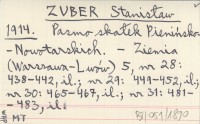 ZUBER Stanisław
1914. Pasmo skałek Pienińsko-
-Nowotarskich. - Ziemia
(Warszawa-Lwów) 5, nr 28:
438-442, il.; nr 29: 449-452, il.;
nr 30: 465-467, il.; nr 31: 481-
-483, il.
MT